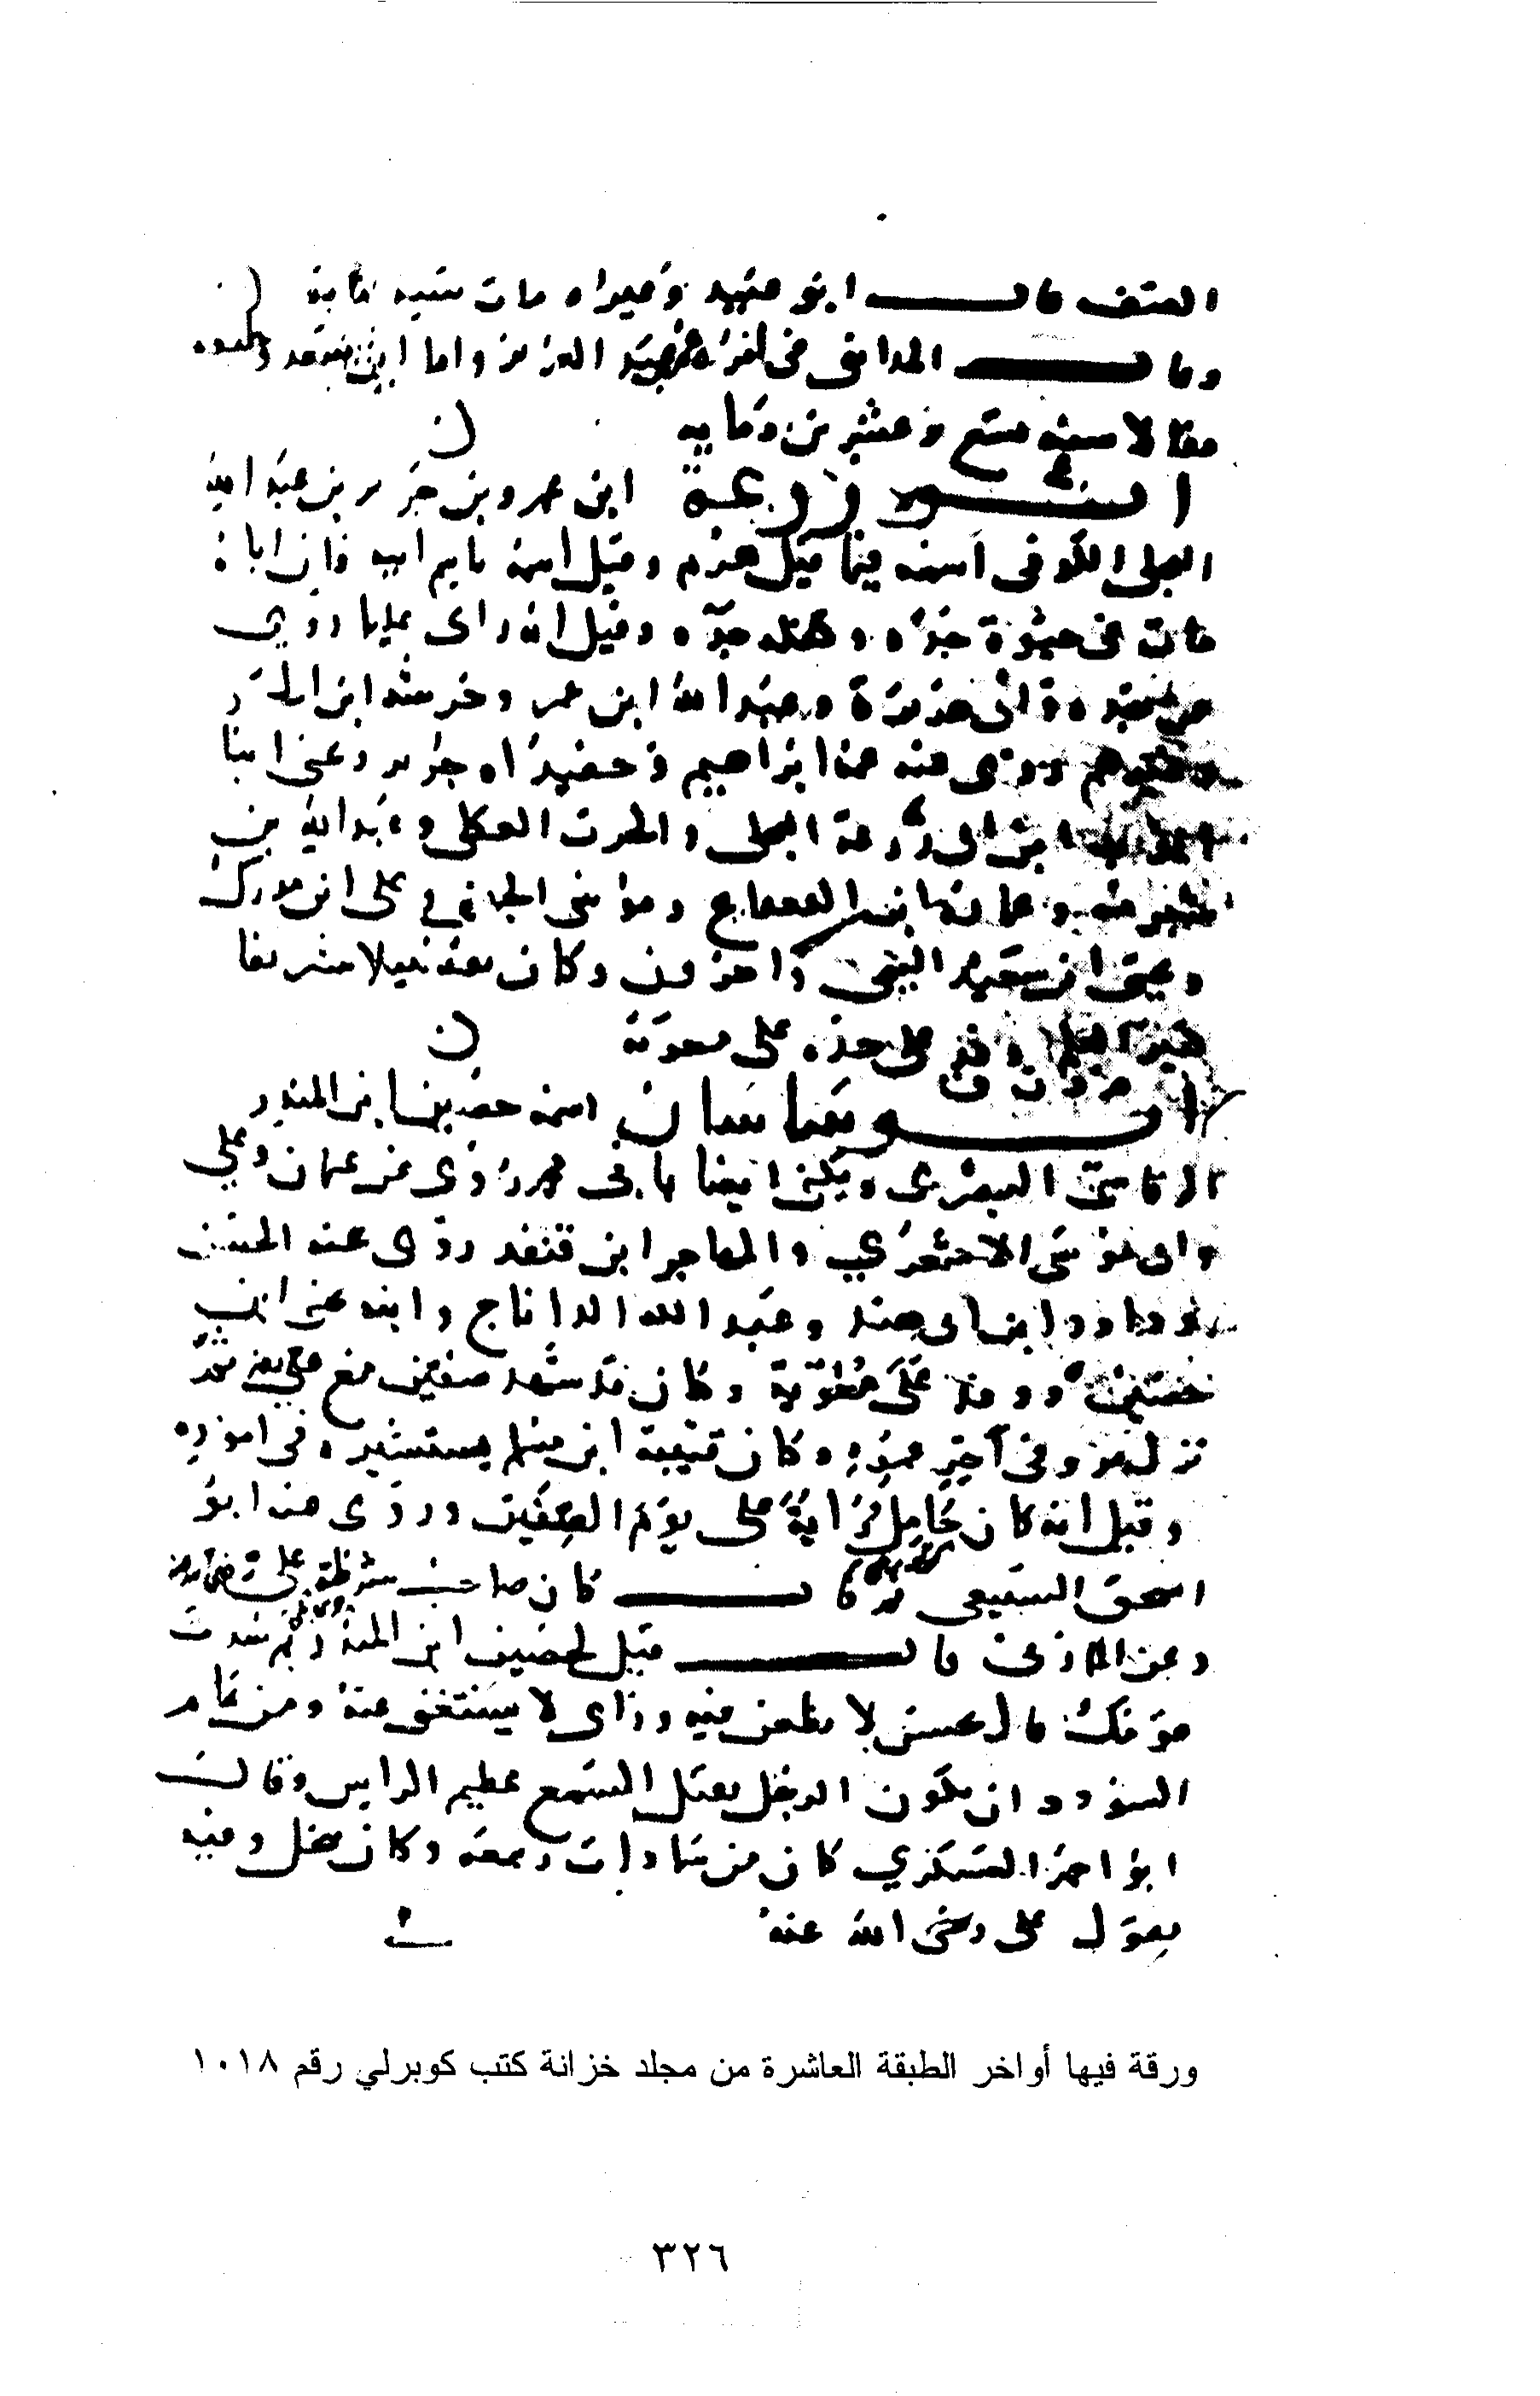 ابو عبيد وغيره مات سنة مائة
وقال المدائني في عمر بن عبد العزيز واما ابن سعد
فقالا سنة سبع وعشرين ومايه
ابو زرعة ابن عمرو بن جرير بن عبد الله
البجلي الكوفي اسمه فيما قيل هرم وقيل اسمه فان اباه
مات في حيوة جده وقيل انه راى عليا روى
عن جده وابي هريرة وعبد الله ابن عمر وخرشه ابن الحر
وغيرهم روى عنه ابراهيم وحفيداه جرير ويحيى ابنا
ابن ابي زرعة البجلي والحرث العكلي وعبد الله بن
شبرمه وعمارة ابن القعقاع وموسى الجهني وعلي ابن مدرك
ويحيى ابن سعيد التيمي واخرون وكان ثقة نبيلا شريفا
كثير العلم وفد على جده على معوية
ابو ساسان اسمه حضين ابن المنذر
الرقاشي البصري ويكنى ايضا بابي محمد روى عن عثمان وعلي
وابي موسى الاشعري والمهاجر ابن قنفد روى عنه الحسن
وداود ابن ابي هند وعبد الله الداناج وابنه يحيى ابن
حضين ووفد على معوية وكان قد شهد صفين مع علي
نزل مرو في آخر عمره وكان قتيبة ابن مسلم يستشيره في اموره
وقيل انه كان حامل راية علي يوم الصفين وروى عنه ابو
اسحق السبيعي وقال كان صاحب شرطة علي
وعن المازني قال قيل لحضين ابن المنذر بم سدت
قومك قال بحسب لا يطعن فيه وراى لا يستغنى عنه ومن تمام
السؤدد ان يكون الرجل ثقيل السمع عظيم الراس وقال
ابو احمد العسكري كان من سادات ربيعة وكان يبخل وفيه
يقول علي رضي الله عنه
ورقة فيها أواخر الطبقة العاشرة من مجلد خزانة كتب كوبرلي رقم ١٠١٨
٣٢٦